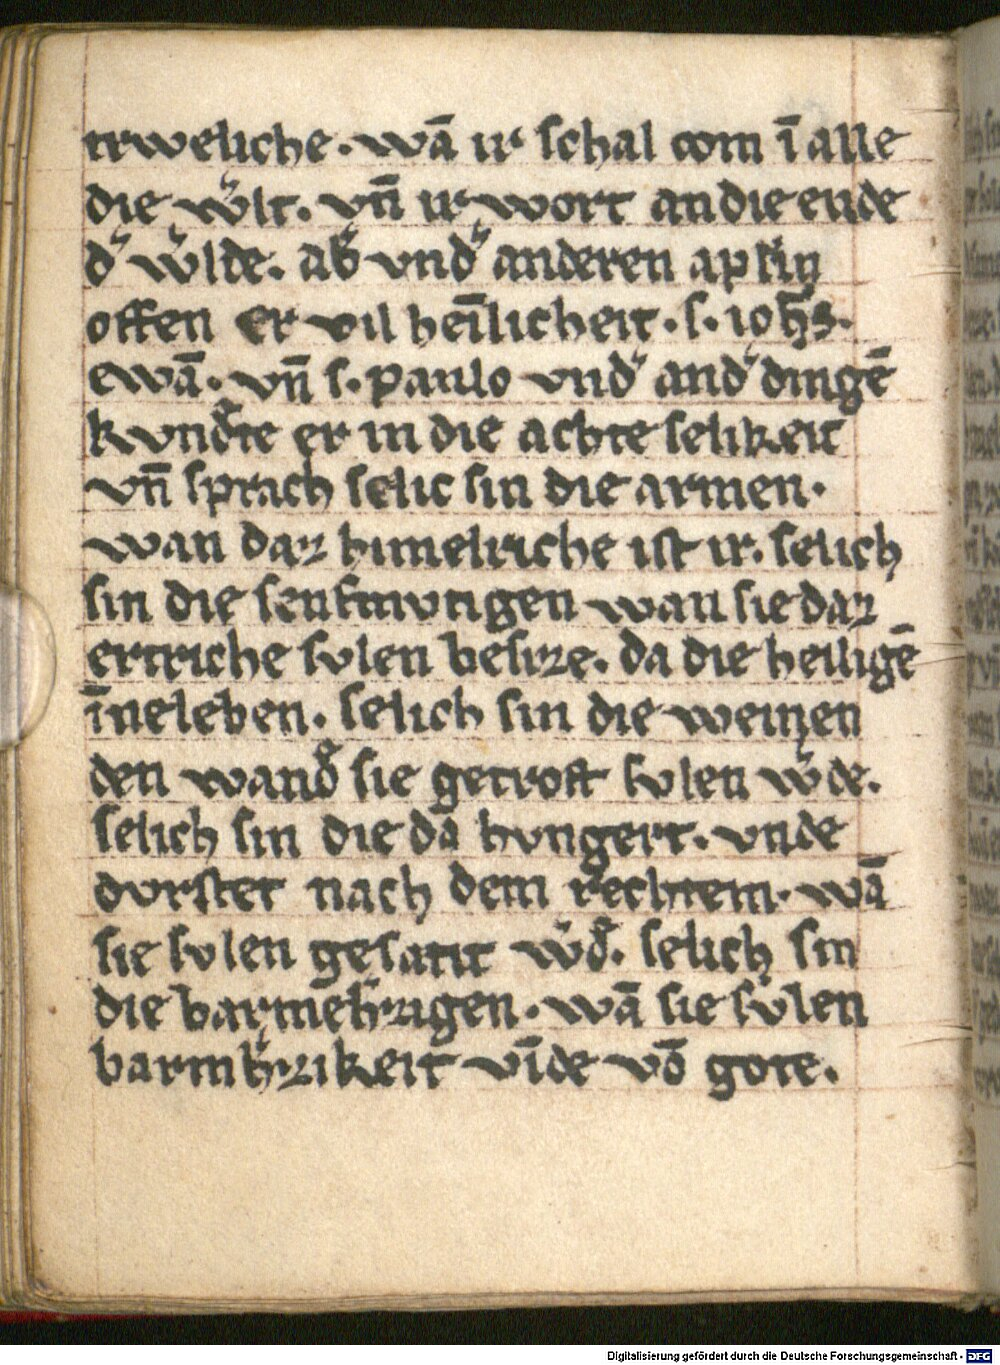 trweliche. wā ir schal com ī alle
die wˀlt. vn̄ ir wort an die ende
dˀ wˀlde. abˀ vndˀ anderen aplin
offen er vil heīlicheit. s. ioh̄s.
ewā. vn̄ s. paulo vndˀ andˀ dingē
kvndˀte er in die achte selikeit
vn̄ sprach selic sin die armen.
wan daz himelriche ist ir. selich
sin die senfmvtigen wan sie daz
ertriche svlen besitze. da die heiligē
īne leben. selich sin die weinen
den wandˀ sie getrost svlen wˀde.
selich sin die da hvngert. vnde
dvrstet nach dem rechtem. wā
sie svlen gesatit wˀdˀ. selich sin
die barmehˀzigen. wā sie svlen
barmhˀzikeit vīde vō gote.
Digitalisierung gefördert durch die Deutsche Forschungsgemeinschaft - DFG